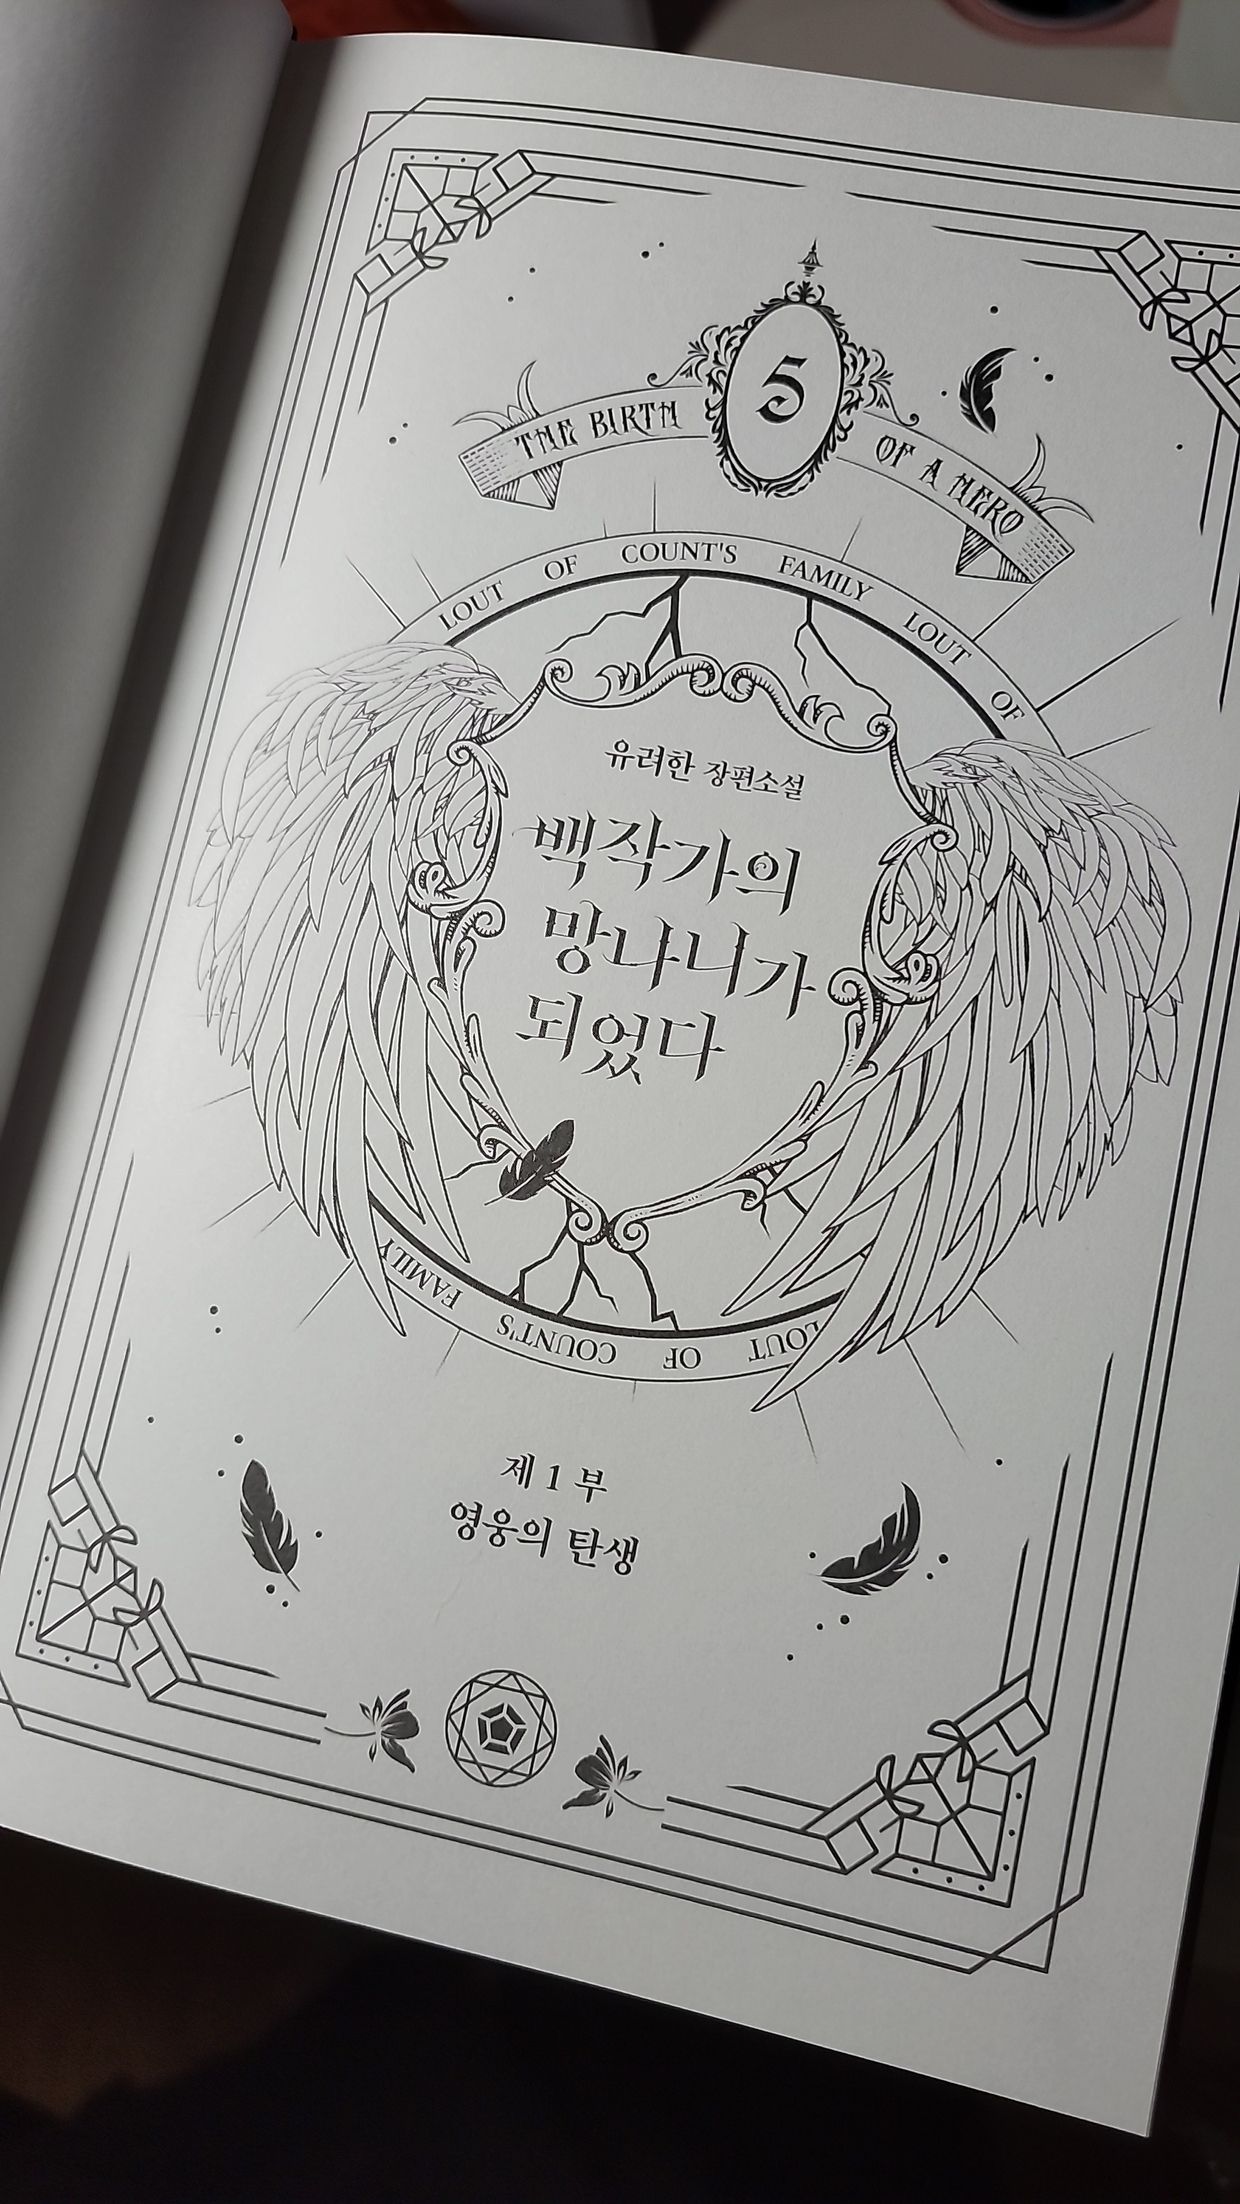 5
THE BIRTH OF A HERO
LOUT OF COUNT'S FAMILY LOUT OF
유려한 장편소설
백작가의
망나니가
되었다
LOUT OF COUNT'S FAMILY
제 1 부
영웅의 탄생